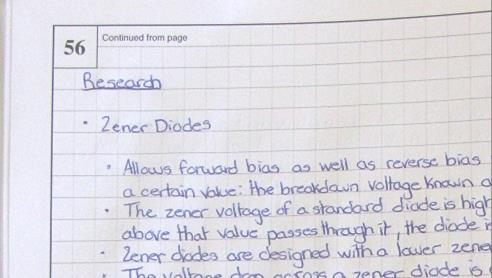 56
Continued from page
Research
• Zener Diodes
• Allows forward bias as well as reverse bias
a certain value: the breakdown voltage known
• The zener voltage of a standard diode is high
above that value passes through it, the diode
• Zener diodes are designed with a lower zene
The voltage drop across a zener diode is